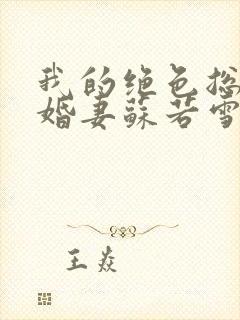 我的绝色总
婚妻苏若雪
王焱